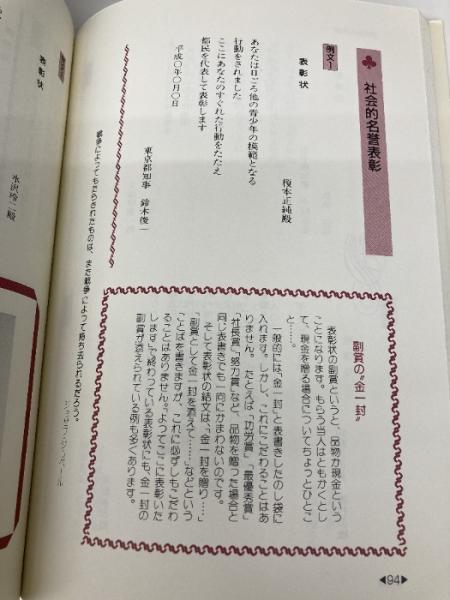 社会的名誉表彰
例文1
表彰状
桜本正純殿
あなたは日ごろ他の青少年の模範となる
行動をされました
ここにあなたのすぐれた行動をたたえ
都民を代表して表彰します
平成○年○月○日
東京都知事 鈴木俊一
副賞の“金一封”
表彰状の副賞というと、品物か現金という
ことになります。もらう当人はともかくとし
て、現金を贈る場合についてちょっとひとこ
と……。
一般的には、「金一封」と表書きしたのし袋に
入れます。しかし、これにこだわることはあ
りません。たとえば、「功労賞」、「最優秀賞」
「社長賞」、「努力賞」など、品物を贈った場合と
同じ表書きでも一向にかまわないのです。
そして表彰状の結文は、「金一封を贈り……」
「副賞として金一封を添えて……」などという
ことばを書きますが、これに必ずしもこだわ
ることはありません。「よってここに表彰いた
します」で終わっている表彰状にも、金一封の
副賞が添えられている例も多くあります。
戦争によってもたらされたものは、また戦争によって持ち去られるだろう。
ジョセフ・ジュベール
表彰状
◀94▶